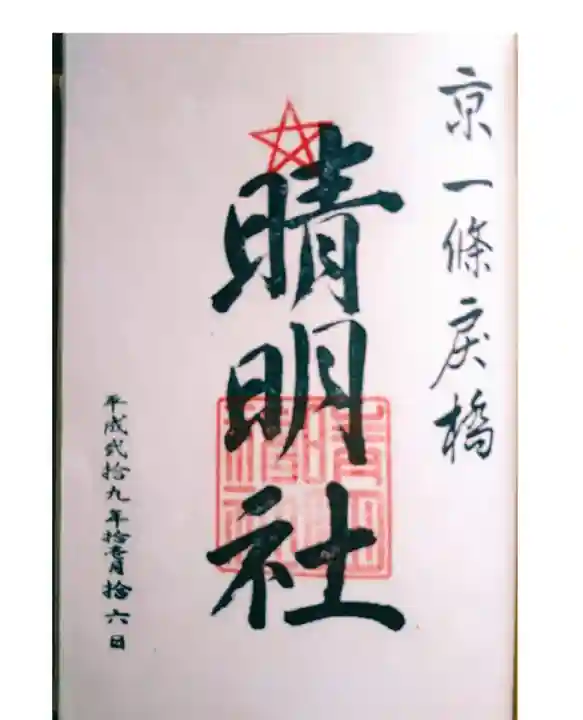 京一條戻橋
晴明社
平成弐拾九年拾壱月拾六日